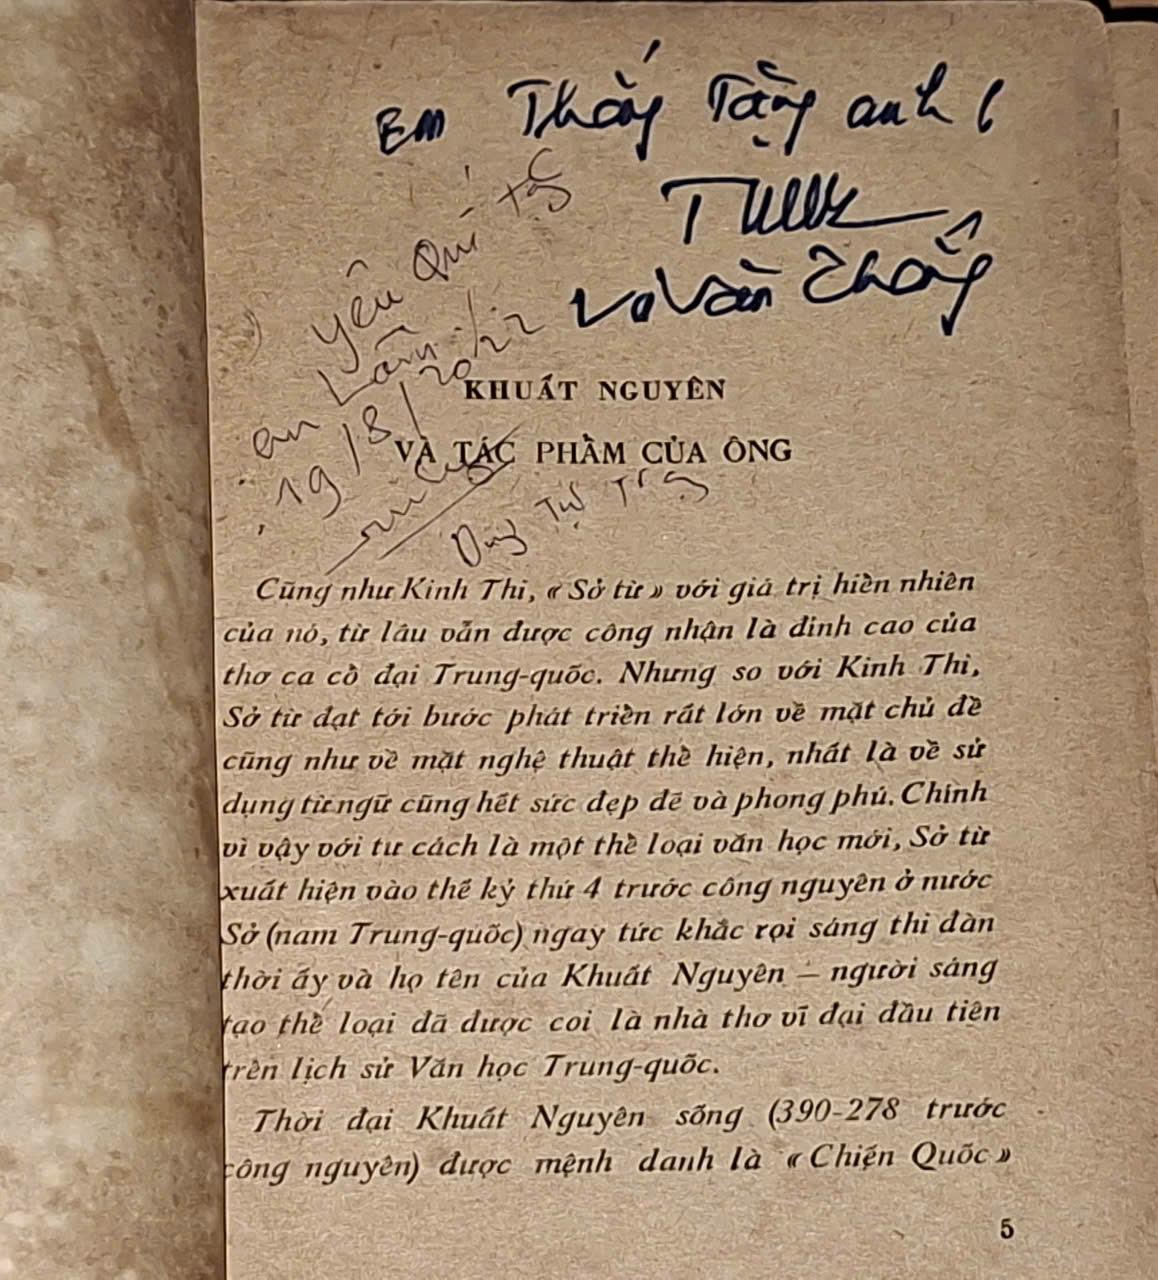 Em Thống Tặng anh
Võ Văn Thống
yêu Quí tg
an Lâm
19/8/2022
Duy Tự Trg
KHUẤT NGUYÊN
VÀ TÁC PHẨM CỦA ÔNG
Cũng như Kinh Thi, « Sở từ » với giá trị hiển nhiên
của nó, từ lâu vẫn được công nhận là đỉnh cao của
thơ ca cổ đại Trung-quốc. Nhưng so với Kinh Thi,
Sở từ đạt tới bước phát triển rất lớn về mặt chủ đề
cũng như về mặt nghệ thuật thể hiện, nhất là về sử
dụng từ ngữ cũng hết sức đẹp đẽ và phong phú. Chính
vì vậy với tư cách là một thể loại văn học mới, Sở từ
xuất hiện vào thế kỷ thứ 4 trước công nguyên ở nước
Sở (nam Trung-quốc) ngay tức khắc rọi sáng thi đàn
thời ấy và họ tên của Khuất Nguyên — người sáng
tạo thể loại đã được coi là nhà thơ vĩ đại đầu tiên
trên lịch sử Văn học Trung-quốc.
Thời đại Khuất Nguyên sống (390-278 trước
công nguyên) được mệnh danh là « Chiến Quốc »
5